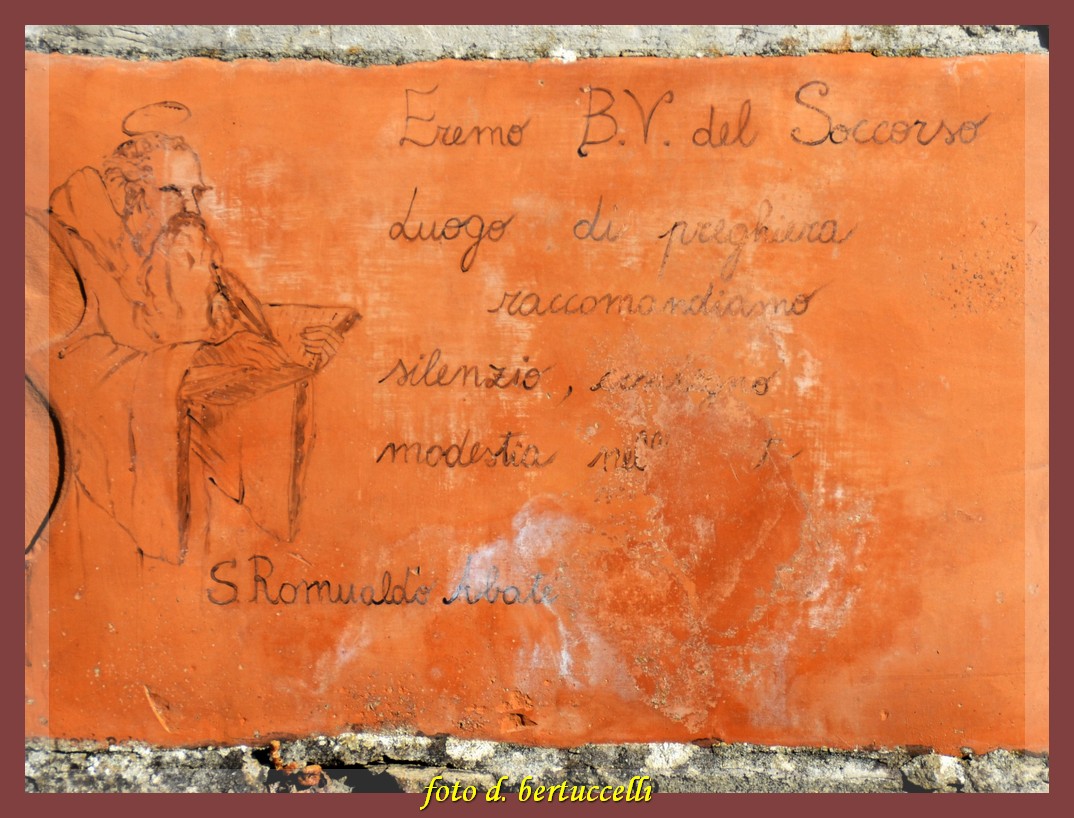 Eremo B.V. del Soccorso
Luogo di preghiera
raccomandiamo
silenzio, contegno
modestia nell'
S. Romualdo Abate
foto d. bertuccelli